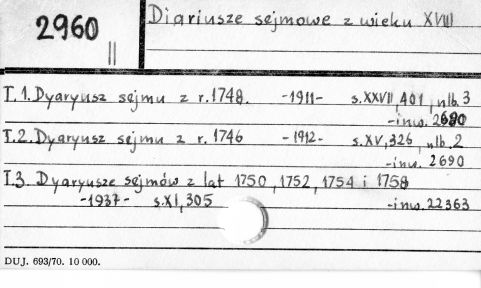 2960
II
Diariusze sejmowe z wieku XVIII
T.1. Dyaryusz sejmu z r. 1748. -1911- s. XXVII, 401, nlb. 3
-inw. 2690
T.2. Dyaryusz sejmu z r. 1746 -1912- s. XV, 326, nlb. 2
-inw. 2690
T.3. Dyaryusze sejmów z lat 1750, 1752, 1754 i 1758
-1937- s. XI, 305 -inw. 22363
DUJ. 693/70. 10 000.